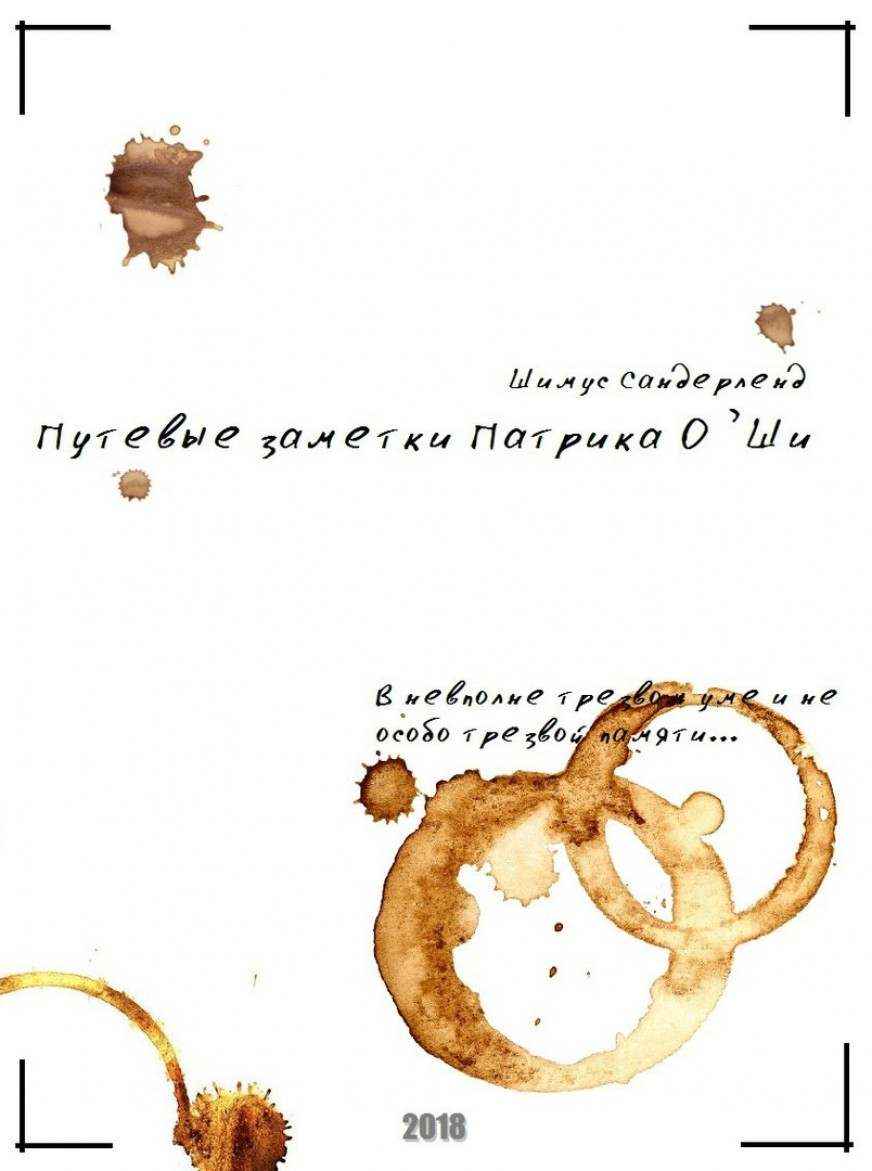 Шимус Сандерленд
Путевые заметки Патрика О`Ши
В невполне трезвом уме и не
особо трезвой памяти...
2018